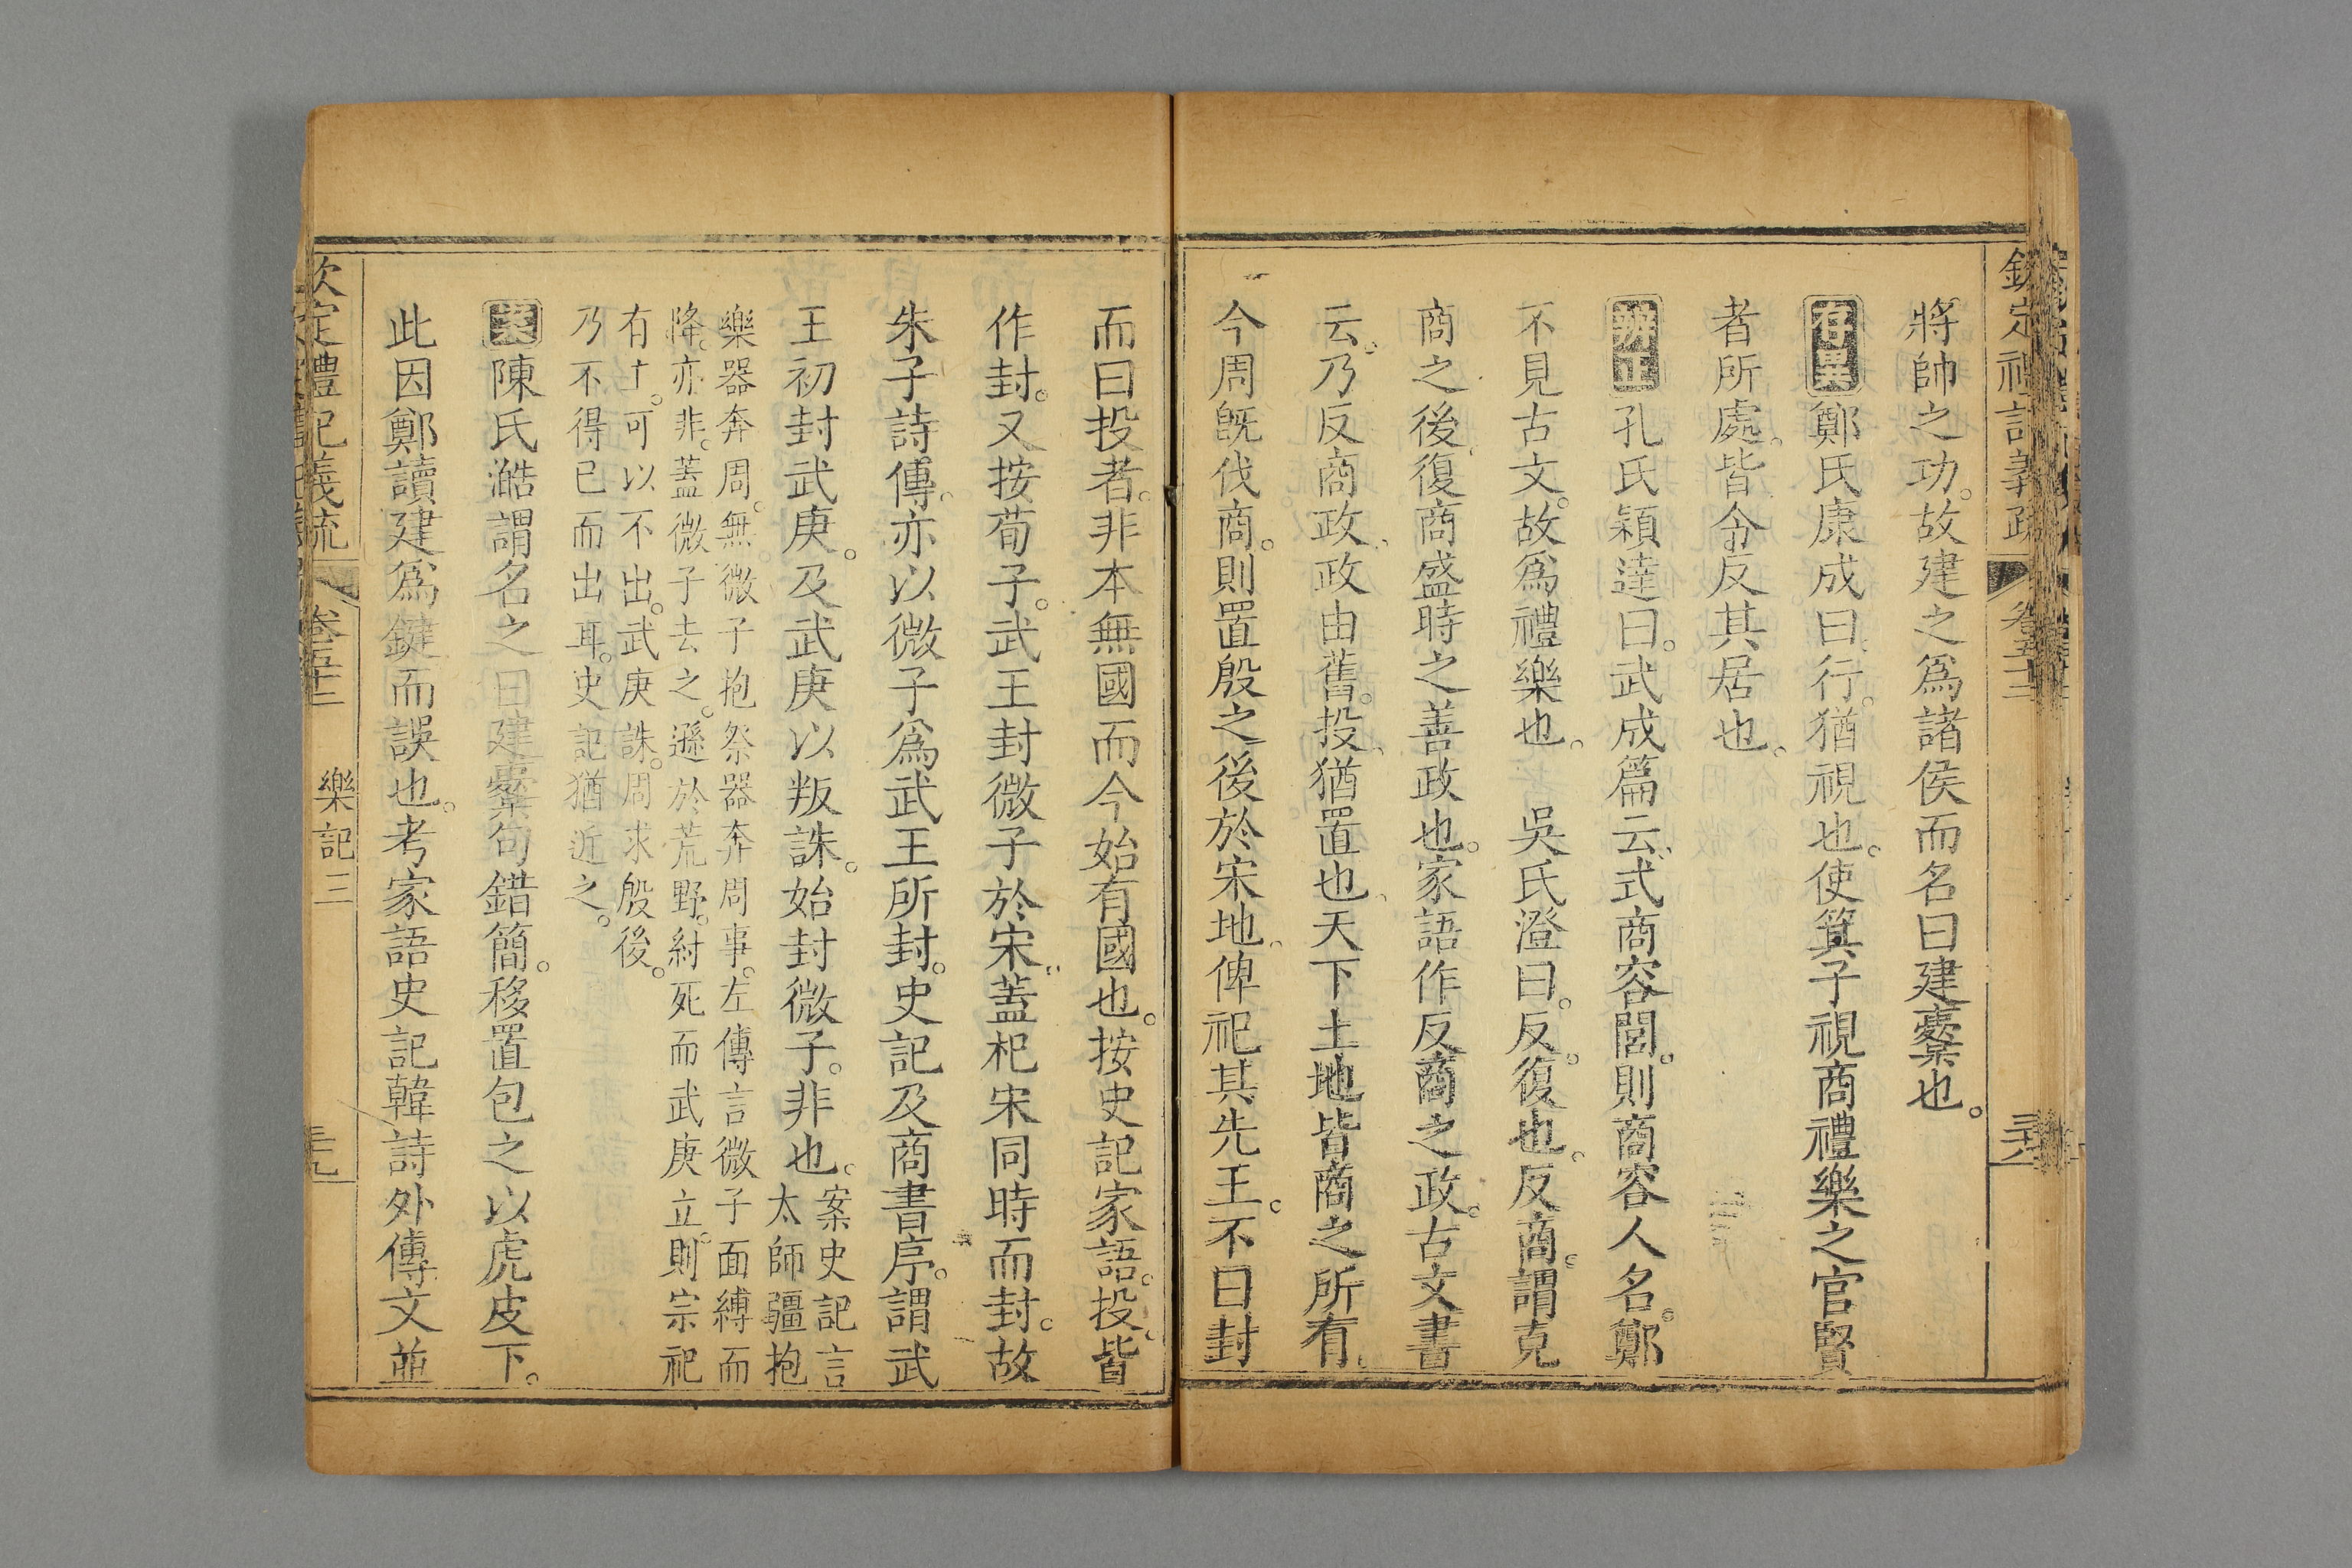 欽定禮記義疏 卷五十二
將帥之功。故建之爲諸侯而名曰建櫜也。
存異鄭氏康成曰行。猶視也。使箕子視商禮樂之官賢
者所處。皆令反其居也。
辨正孔氏穎達曰。武成篇云、式商容閭。則商容人名。鄭
不見古文。故爲禮樂也。 吳氏澄曰。反。復也。反商。謂克
商之後、復商盛時之善政也。家語作反商之政。古文書
云。乃反商政、政由舊。投、猶置也、天下土地皆商之所有、
今周旣伐商。則置殷之後於宋地、俾祀其先王。不曰封
而曰投者。非本無國而今始有國也。按史記家語。投、皆
作封。又按荀子。武王封微子於宋、蓋杞宋同時而封。故
朱子詩傳。亦以微子爲武王所封。史記及商書序。謂武
王初封武庚。及武庚以叛誅。始封微子。非也。案史記言
太師疆抱
樂器奔周。無微子抱祭器奔周事。左傳言微子面縛而
降。亦非。蓋微子去之。遜於荒野。紂死而武庚立。則宗祀
有十。可以不出。武庚誅。周求殷後。
乃不得已而出耳。史記猶近之。
陳氏澔謂名之曰建櫜句錯簡。移置包之以虎皮下。
此因鄭讀建爲鍵而誤也。考家語史記韓詩外傳文並
欽定禮記義疏 卷五十二 樂記三 三九